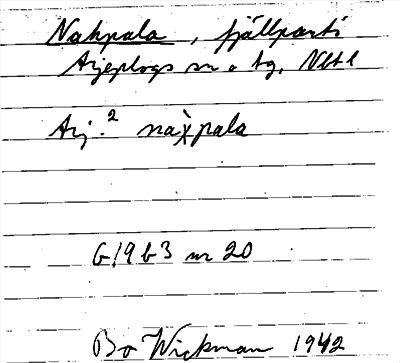 Nakpala, fjällparti
Arjeplogs sn o tg, Nbtl
Arj.² nax̀pala
G19b3 nr 20
Bo Wickman 1942